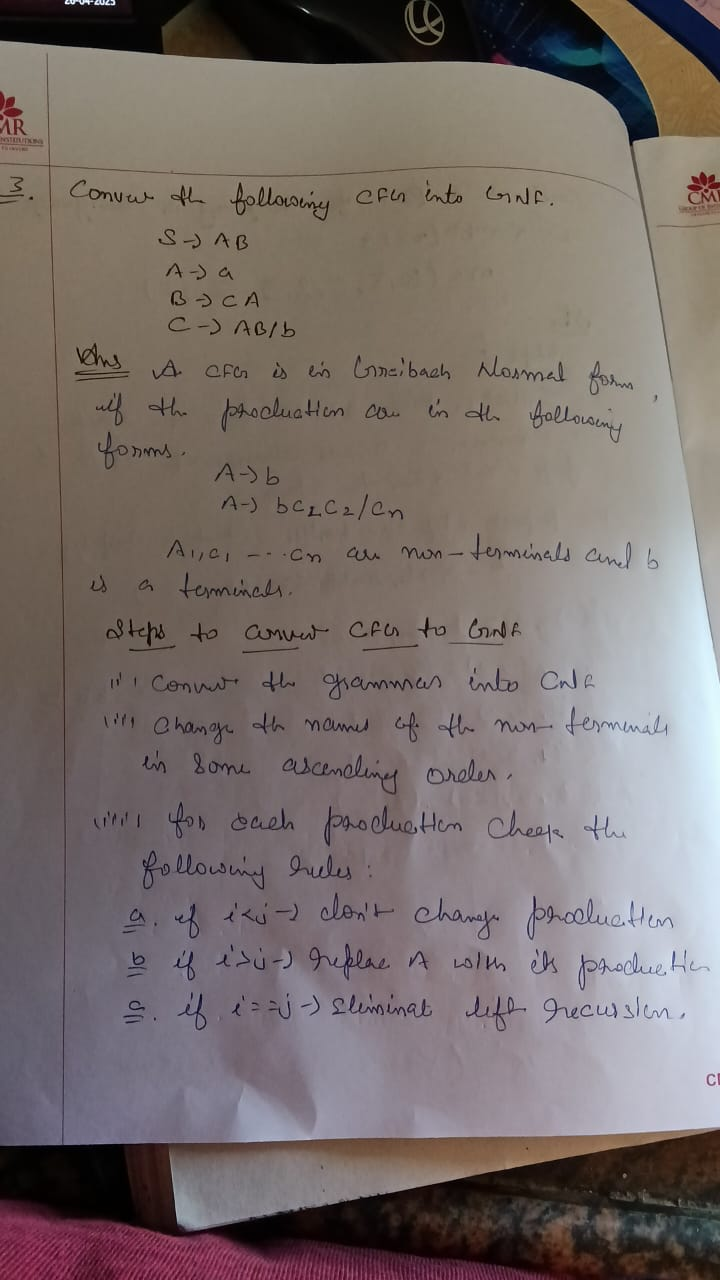 20-04-2025
MR
INSTITUTIONS
CMR
3. Convert the following CFG into GNF.
S → AB
A → a
B → CA
C → AB/b
Ans A CFG is in Greibach Normal form,
if the production are in the following
forms.
A → b
A → bC1C2/Cn
A1, C1 --- Cn are non-terminals and b
is a terminals.
Steps to convert CFG to GNF
(i) Convert the grammar into CNF
(ii) Change the names of the non-terminals
in some ascending order.
(iii) for each production check the
following rules:
a. if i<j → don't change production
b if i>j → replac A with its production
c. if i==j → Eliminat left recursion.